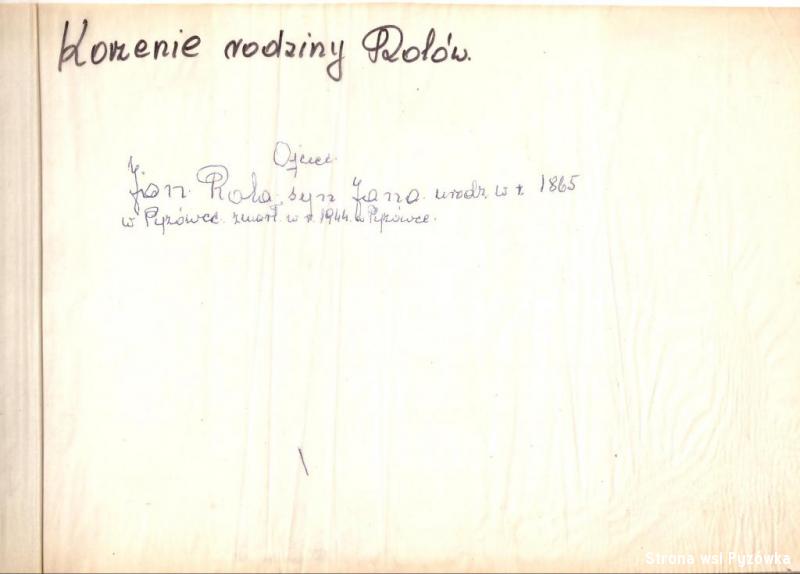 Korzenie rodziny Rolów.
Ojciec
Jan Rola syn Jana urodz. w r. 1865
w Pyzówce. zmarł. w r. 1944. w Pyzówce.
Strona wsi Pyzówka